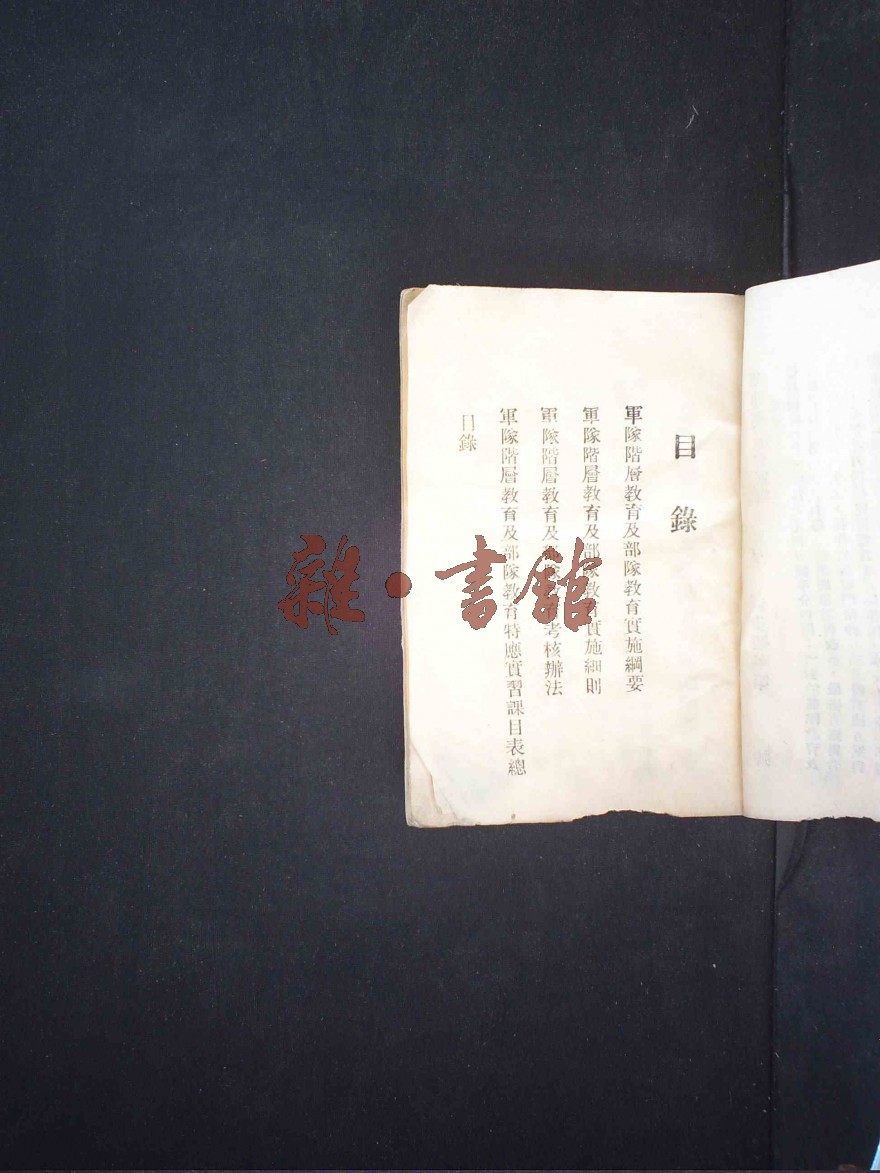 目錄
軍隊階層教育及部隊教育實施綱要
軍隊階層教育及部隊教育實施細則
軍隊階層教育及部隊教育考核辦法
軍隊階層教育及部隊教育特應實習課目表總
目錄
雜·書館